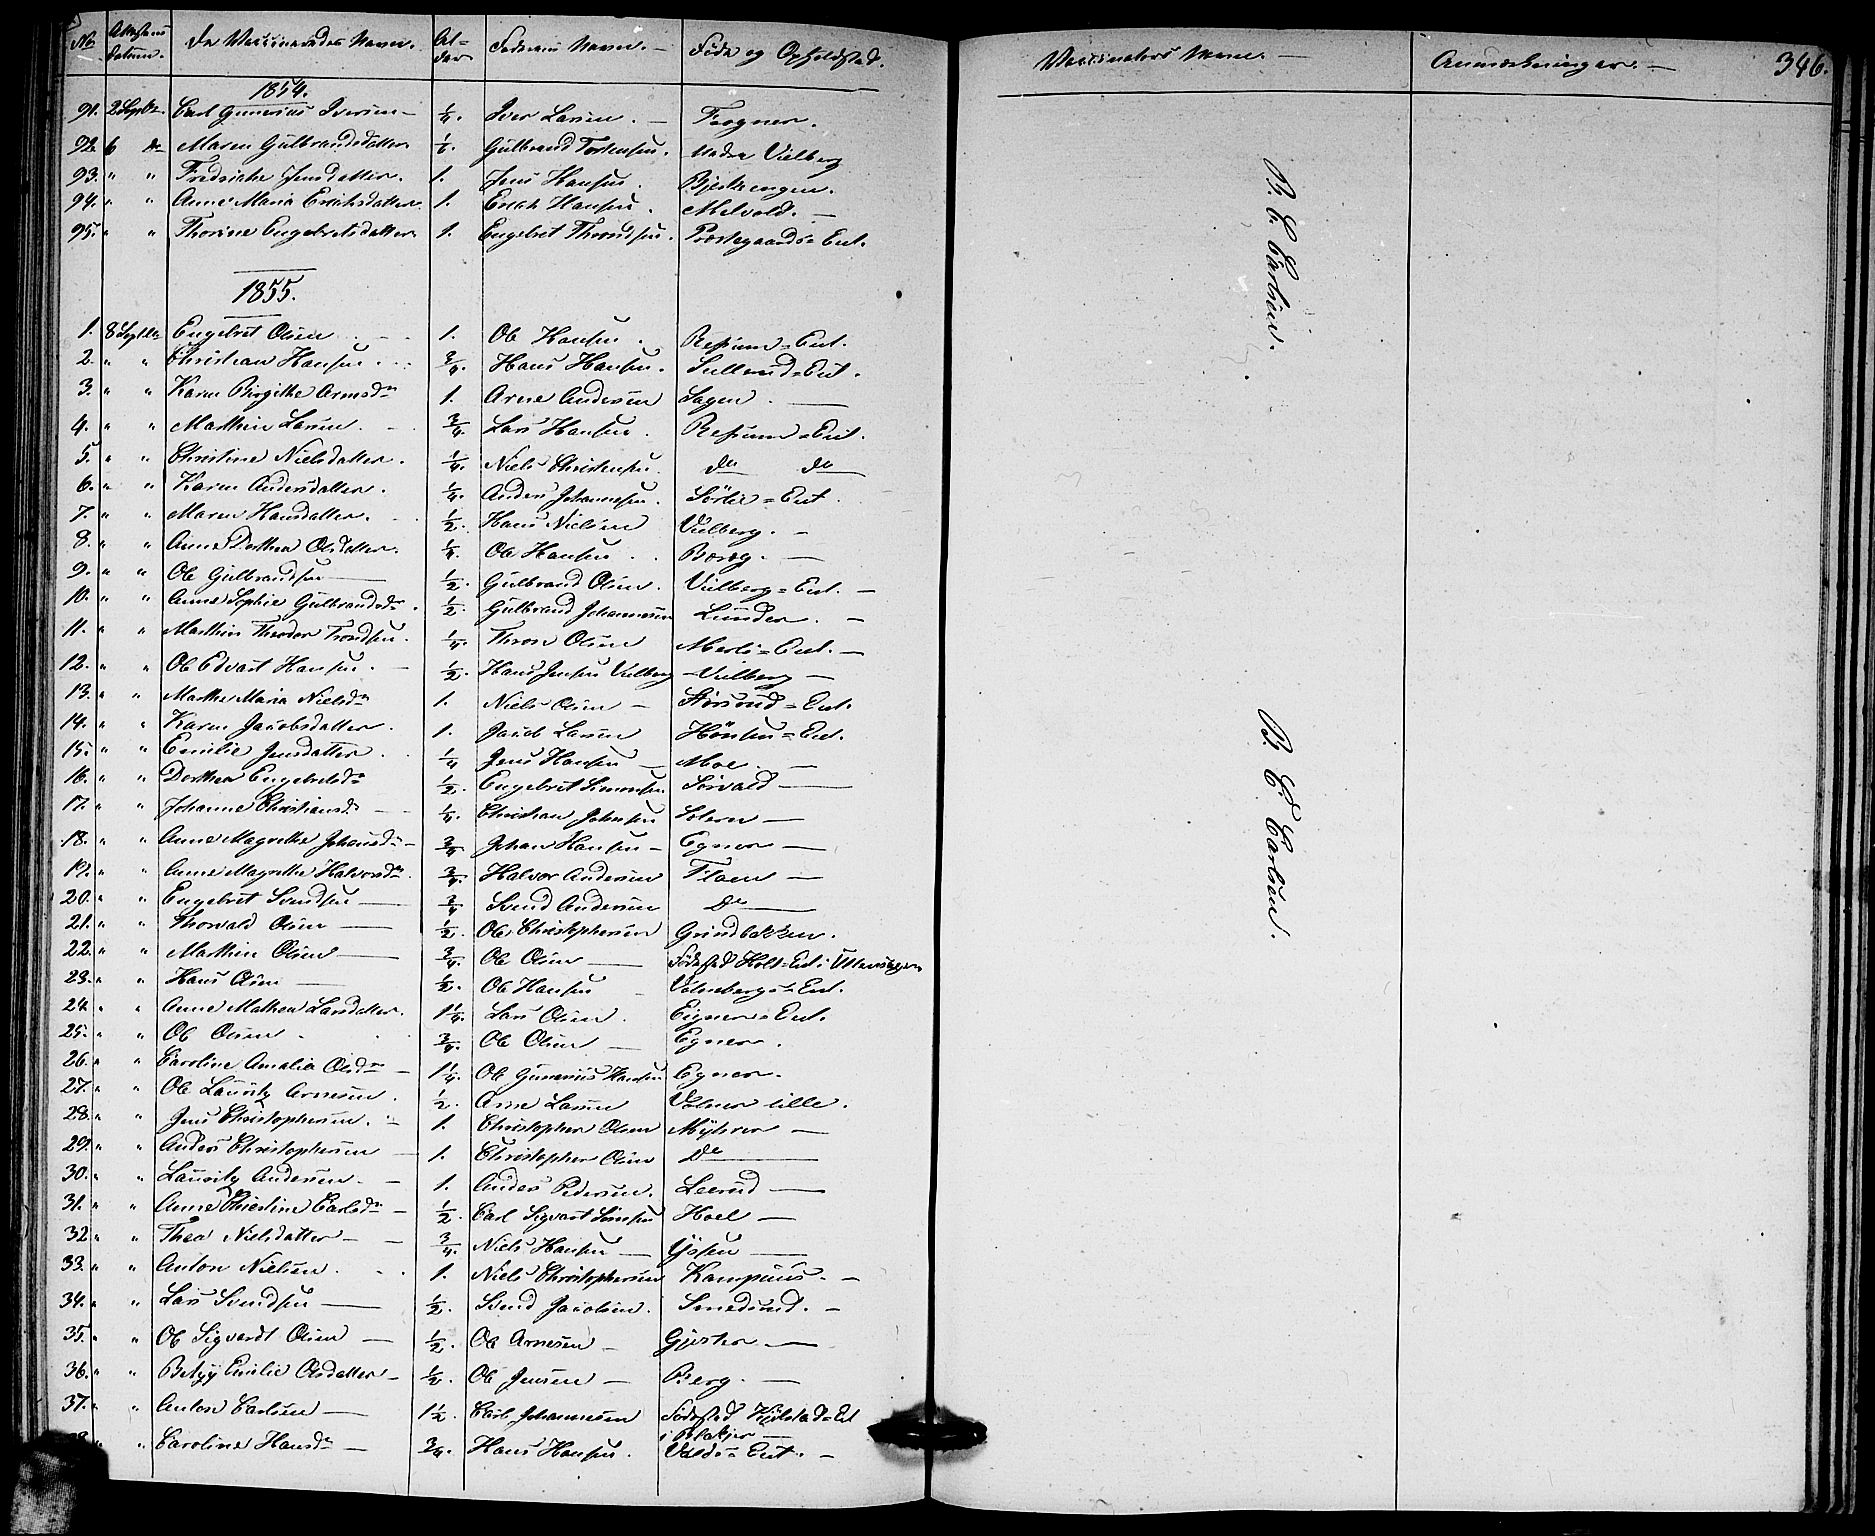 No. Attestens Datum. De Vaccineredes Navne. Al- der Fædrenes Navne. — Føde og Opholdsted. Vaccinators Navn. — Anmærkninger. — 346.
1854.
91. 2 Septbr. Carl Gunerius Iversen — ¼. Iver Larsen. — Frogner.
92. 6 do Maren Gulbrandsdatter Gulbrand Torstensen. Nedre Vielberg
93. " " Fredrikke Jensdatter. 1. Jens Hansen.
94. " " Anne Maria Eriksdatter 1. Erich Hansen. Melvold. —
95. " " Thorine Engebretsdatter. 1. Engebret Thorsdsen. Præstegaards=Eiet.
B. C. Carlsen.
1855.
1. 8 Septbr Engebret Olsen 1. Ole Hansen.
2. " " Christian Hansen ¾. Hans Hansen.
3. " " Karen Birgithe Arnesdr 1. Arne Andersen Sagen. —
4. " " Marthin Larsen. ¾. Lars Hansen.
5. " " Christine Nielsdatter. ¼. Niels Christensen. do do
6. " " Karen Andersdatter. ¼. Anders Johannesen. Sørlie=Eiet.
7. " " Maren Hansdatter. ½. Hans Nielsen Vielberg. —
8. " " Anne Dorthea Olsdatter. ¼. Ole Hansen. —
9. " " Ole Gulbrandsen — ½. Gulbrand Olsen. Vielberg=Eiet. —
10. " " Anne Sophie Gulbrandsdr. ½. Gulbrand Johannesen Lunder. —
11. " " Marthin Theodor Trondsen. ¼. Thron Olsen Merli=Eiet. —
12. " " Ole Edvart Hansen. — ½. Hans Jensen Vielberg Vielberg —
13. " " Marthe Maria Nielsdr 1. Niels Olsen —
14. " " Karen Jacobsdatter. 1. Jacob Larsen
15. " " Emilie Jensdatter. ¼ Jens Hansen — Moe. —
16. " " Dorthea Engebretsdr ½. Engebret Simonsen Sørvald —
17. " " Johanne Christiansdr — ¼. Christian Johnsen —
18. " " Anne Magrethe Johansdr — ¾. Johan Hansen — Egner —
19. " " Anne Magrethe Halvorsdr. ¾. Halvor Andersen Floen —
20. " " Engebret Svendsen — ¾ Svend Andersen Do —
21. " " Thorvald Olsen — ½. Ole Christophersen Grindbakken.
22. " " Marthin Olsen — ¾. Ole Olsen — Fødested Holt=Eiet i Ullensager
23. " " Hans Olsen — ½. Ole Hansen Volnebergs=Eiet.
24. " " Anne Mathea Larsdatter. 1¼. Lars Olsen Eigner=Eiet.
25. " " Ole Olsen. ¾. Ole Olsen — Egner.
26. " " Caroline Amalia Olsdr — 1¼. Ole Gunerius Hansen Egner.
27. " " Ole Lauritz Arnesen. ½. Arne Larsen Volner lille.
28. " " Jens Christophersen. — 1. Christopher Olsen Myhrer —
29. " " Anders Christophersen — 1. Christopher Olsen Do —
30. " " Lauritz Andersen. — 1. Anders Pedersen. Leerud —
31. " " Anne Christine Carlsdr — ½. Carl Sigvart Hoel —
32. " " Thea Nielsdatter — ¾. Niels Hansen —
33. " " Anton Nielsen. 1. Niels Christophersen Kamphus. —
34. " " Lars Svendsen — ½. Svend Jacobsen. Smedsrud. —
35. " " Ole Sigvardt Olsen — ½. Ole Arnesen — —
36. " " Betzy Emilie Olsdatter — ½. Ole Jensen — Berg. —
37. " " Anton Carlsen — 1½. Carl Johannesen Fødested Kjelstad=Eiet
i Blakjer
" Caroline Hansdr — ¾. Hans Hansen. Eiet. —
B. C. Carlsen.